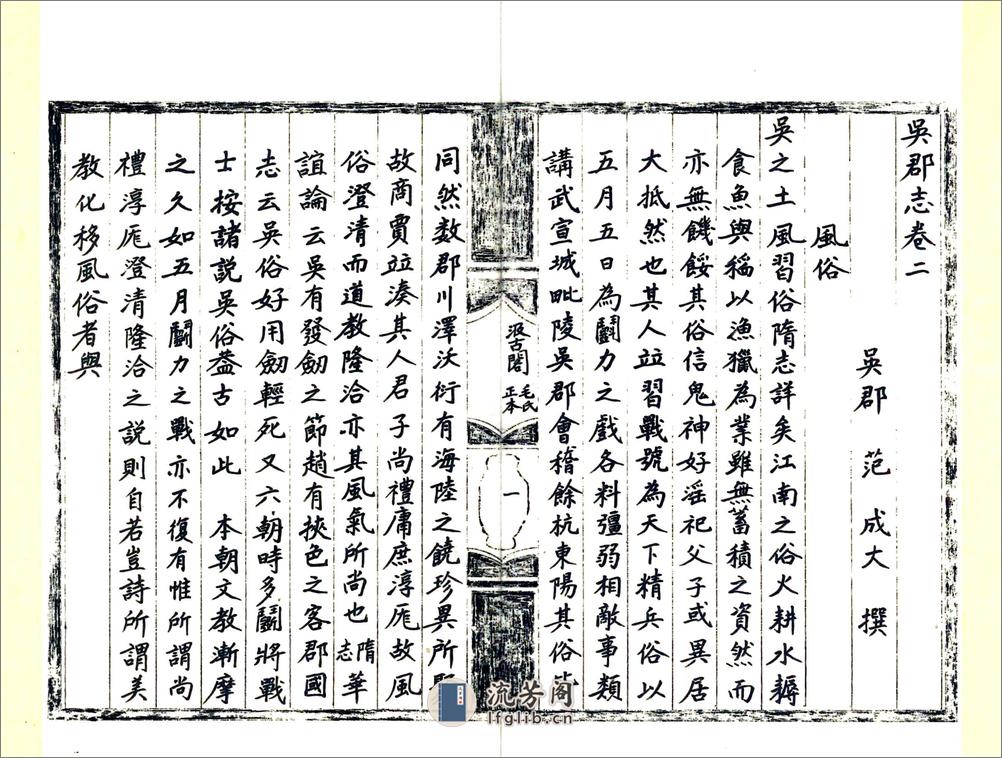 吳郡志卷二
吳郡 范成大 撰
風俗
吳之土風習俗隋志詳矣江南之俗火耕水耨
食魚與稻以漁獵為業雖無蓄積之資然而
亦無饑餒其俗信鬼神好淫祀父子或異居
大抵然也其人竝習戰號為天下精兵俗以
五月五日為鬭力之戲各料彊弱相敵事類
講武宣城毗陵吳郡會稽餘杭東陽其俗
汲古閣
毛氏
正本
一
同然数郡川澤沃衍有海陸之饒珍異所
故商賈竝湊其人君子尚禮庸庶淳厖故風
俗澄清而道教隆洽亦其風氣所尚也隋志華
誼論云吳有發劒之節趙有挾色之客郡國
志云吳俗好用劒輕死又六朝時多鬭將戰
士按諸説吳俗葢古如此 本朝文教漸摩
之久如五月鬭力之戰亦不復有惟所謂尚
禮淳厖澄清隆洽之説則自若豈詩所謂美
教化移風俗者與
流芳阁
lfglib.cn